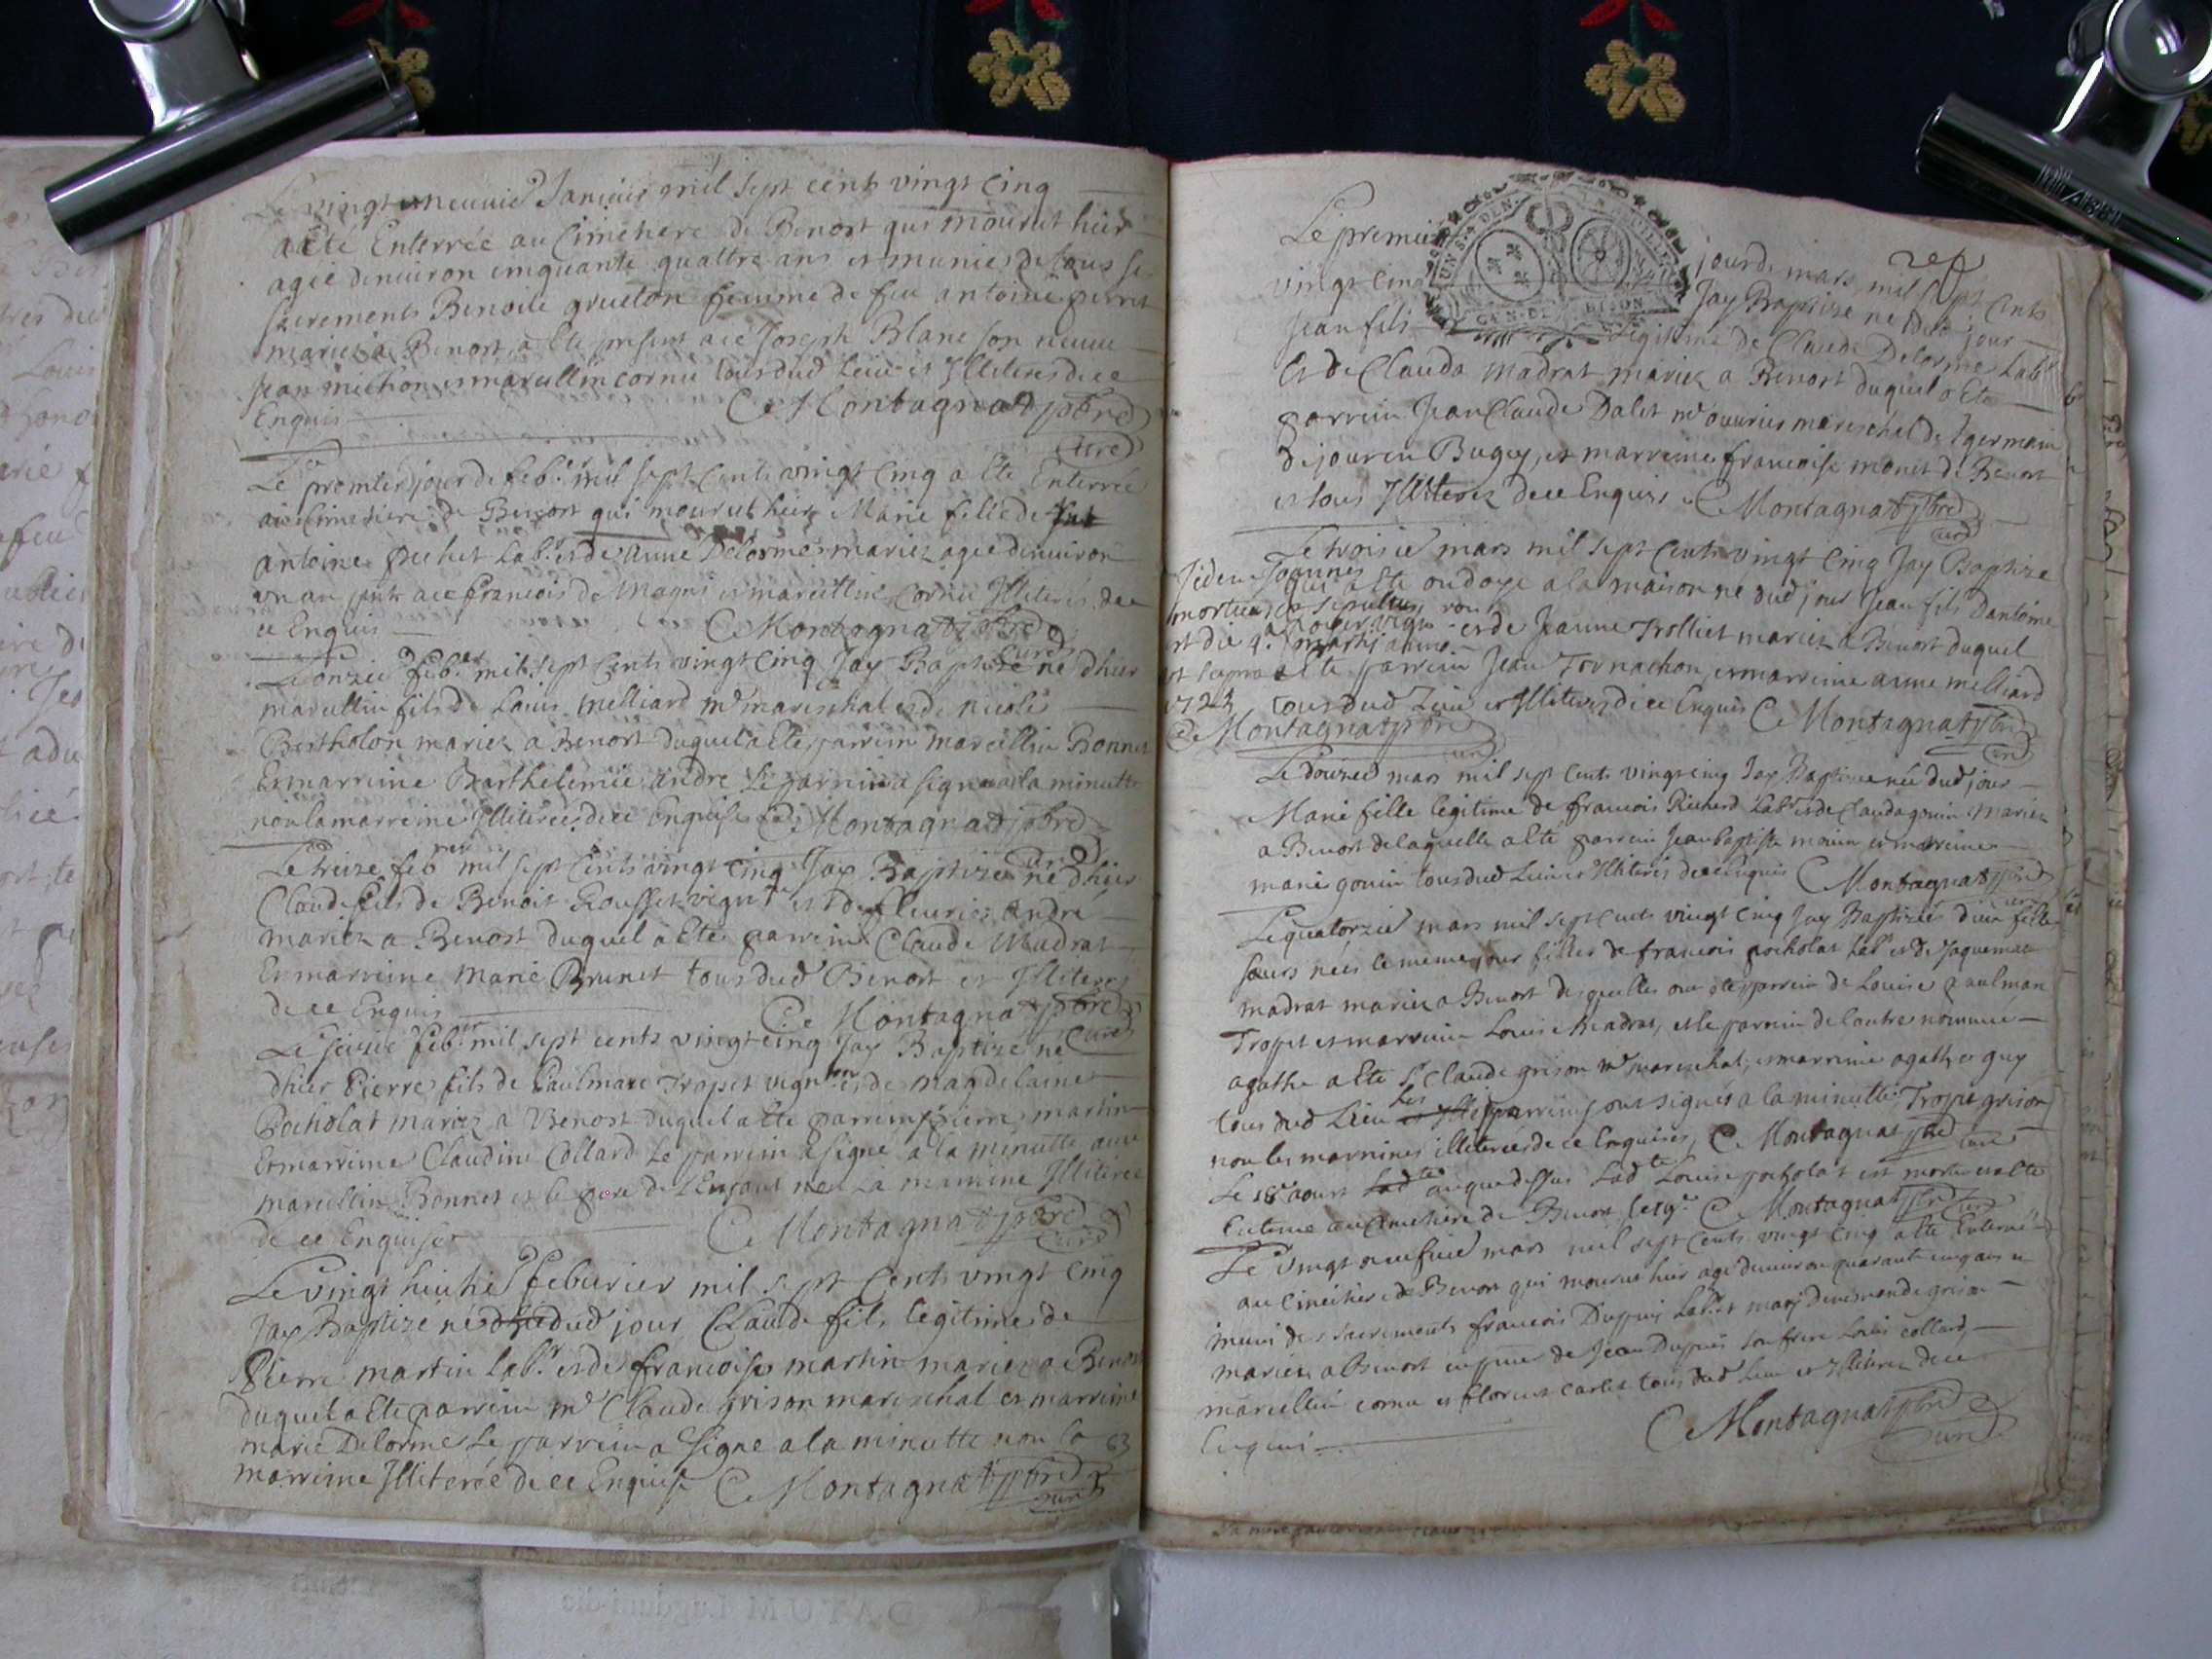 Le vingt neuvie Janvier mil sept cents vingt cinq
a eté Enterrée au Cimetiere de Benost qui mourut hier
agée denviron cinquante quattre ans et munies de tous ses
sacrements Benoite gruelon femme de feu antoine perret
mariez a Benost, a Ete present ace Joseph Blanc son neveu
Jean michon et marcellin cornu tous dud Lieu et Illiteres de ce
Enquis C Montagnat ptbre
curé
Le premier jour de feb.r mil sept cents vingt cinq a Ete Enterrée
au cimetiere de Benost qui mourut hier Marie fille de
antoine pechet Lab.r et de anne Delorme mariez agée denviron
un an pnts ace francois De Magni et marcellin Cornu Illiterés de
ce Enquis C Montagnat ptbre
curé
Le onzie feb.er mil sept cents vingt cinq Jay Baptizé né dhier
marcellin fils de Louis melliard me mareschal et de nicole
Bertholon mariez a Benost duquel a Ete parrein marcellin Bonnet
Et marreine Barthelemie andre Le parrein a signe a la minutte
non la marreine Illiterée de ce Enquise C Montagnat ptbre
curé
Le treize feb.rier mil sept cents vingt cinq Jay Baptizé né dhier
Claude fils de Benoit Rousset vign.on et de fleurie André
mariez a Benost duquel a Ete parrein Claude Madrat
Et marreine Marie Brunet tous dud Benost et Illiteres
de ce Enquis C Montagnat ptbre
curé
Le seizie feb.r mil sept cents vingt cinq Jay Baptizé né
dhier Pierre fils de Paulmare Tropet vign.on et de magdelaine
Pocholat mariez a Benost duquel a Ete parrein pierre martin
Et marreine Claudine Collard Le parrein a signé a la minutte avec
marcellin Bonnet et le pere de l'Enfant non La marreine Illiterée
de ce Enquise C Montagnat ptbre
curé
Le vingt huitie feburier mil sept cents vingt cinq
Jay Baptizé né dud jour Claude fils legitime de
Pierre martin Lab.r et de francoise martin mariez a Benost
duquel a Ete parrein me Claude grison mareschal et marreine
marie Delorme Le parrein a Signe a la minutte non la
marreine Illiterée de ce Enquise C Montagnat ptbre
curé
GEN. DE DIJON
Le premier jour de mars mil sept cents
vingt cinq Jay Baptizé né dud jour
Jean fils Legitime de Claude Delorme Lab.r
Et de Clauda Madrat mariez a Benost duquel a Ete
parrein Jean Claude Dalet me ouvrier mareschal de St germain
de joux en Bugey, et marreine francoise monet de Benost
et tous Illiterez de ce Enquis C Montagnat ptbre
curé
Le troisie mars mil sept cents vingt cinq Jay Baptizé
qui a Ete ondoyé a la maison né dud jour Jean fils Dantoine
et de Jeanne Trolliet mariez a Benost duquel
a Ete parrein Jean Tornachon, et marreine anne melliard
tous dud Lieu et Illiterez de ce Enquis C Montagnat ptbre
curé
Idem Joannes
mortuus et sepultus
die 4.a martij anno
ut supra
1724
C Montagnat ptbre
curé
Le douzie mars mil sept cents vingt cinq Jay Baptizee née dud jour
Marie fille legitime de francois Richerd Lab.r et de Clauda gouin mariez
a Benost de laquelle a Eté parrein Jean baptiste monin et marreine
marie gouin tous dud Lieu et Illiteres de ce Enquis C Montagnat ptbre
curé
Le quatorzie mars mil sept cents vingt cinq Jay Baptizées deux filles
sœurs nées le meme jour filles de francois pocholat Lab.r et de Jaquemaz
madrat mariez a Benost desquelles ont été parrein de Louise paulman
Tropet et marreine Louise Madrat, et le parrein de lautre nommée
agathe a Ete Sr Claude grison me mareschal, et marreine agathe guy
tous dud Lieu Les parreins ont signés a la minutte, Tropet grison
non les marreines illiterées de ce Enquises, C Montagnat ptbre
curé
Le 18e aoust an que dessus Lad.te Louise pocholat est morte et a Ete
Enterrée au cimetiere de Benost C Montagnat ptbre curé
Le vingt mars mil sept cents vingt cinq a Ete Enterré
au cimetiere de Benost qui mourut hier agé denviron quarante cinq ans et
muni des sacrements francois Dupuis Lab.r et mary grison
mariez a Benost en pnce de Jean Dupuis son frere Louis collard
marcellin cornu et florent Carlet tous dud Lieu et Illiterez de ce
Enquis C Montagnat ptbre
curé
DATUM Lugduni die